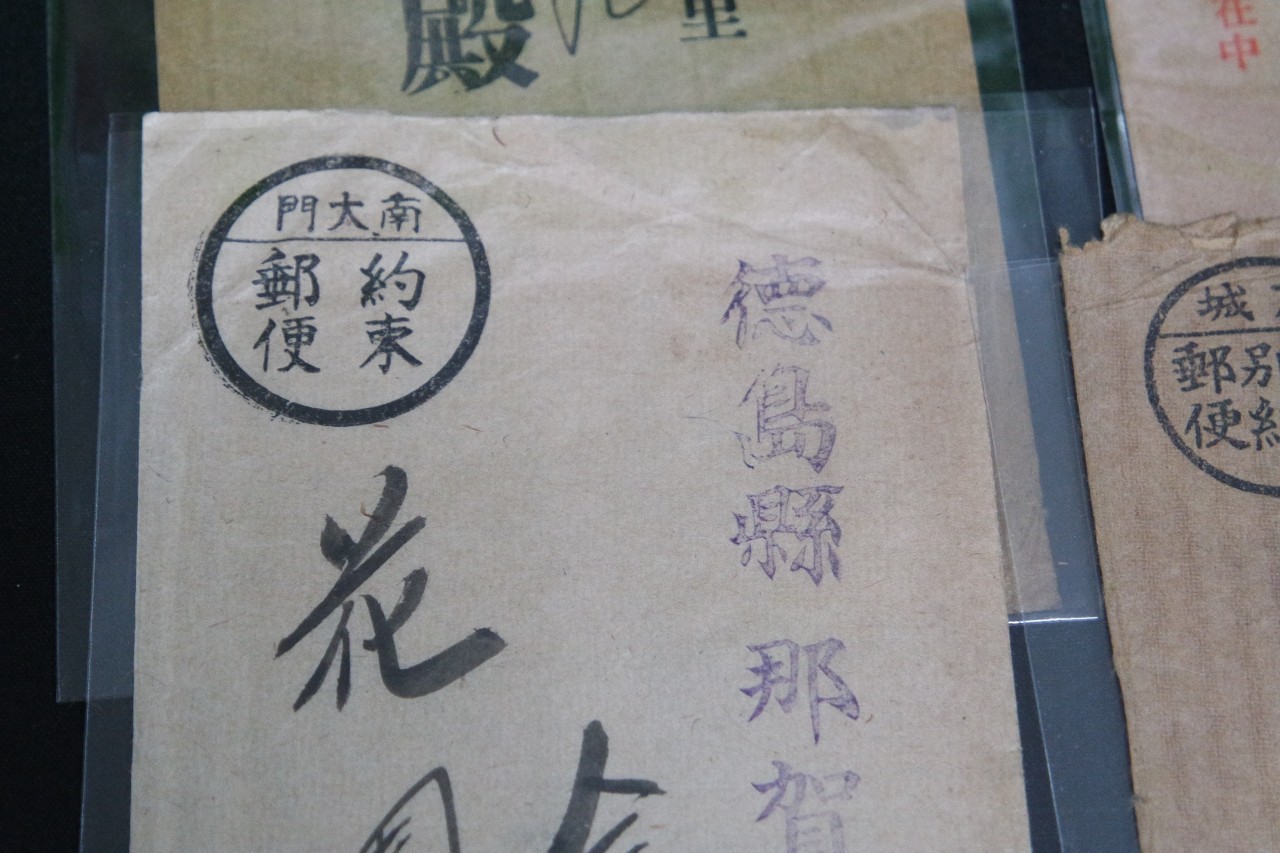 殿
里
在中
南大門
約束
郵便
徳島縣那賀
花
城
別
郵便